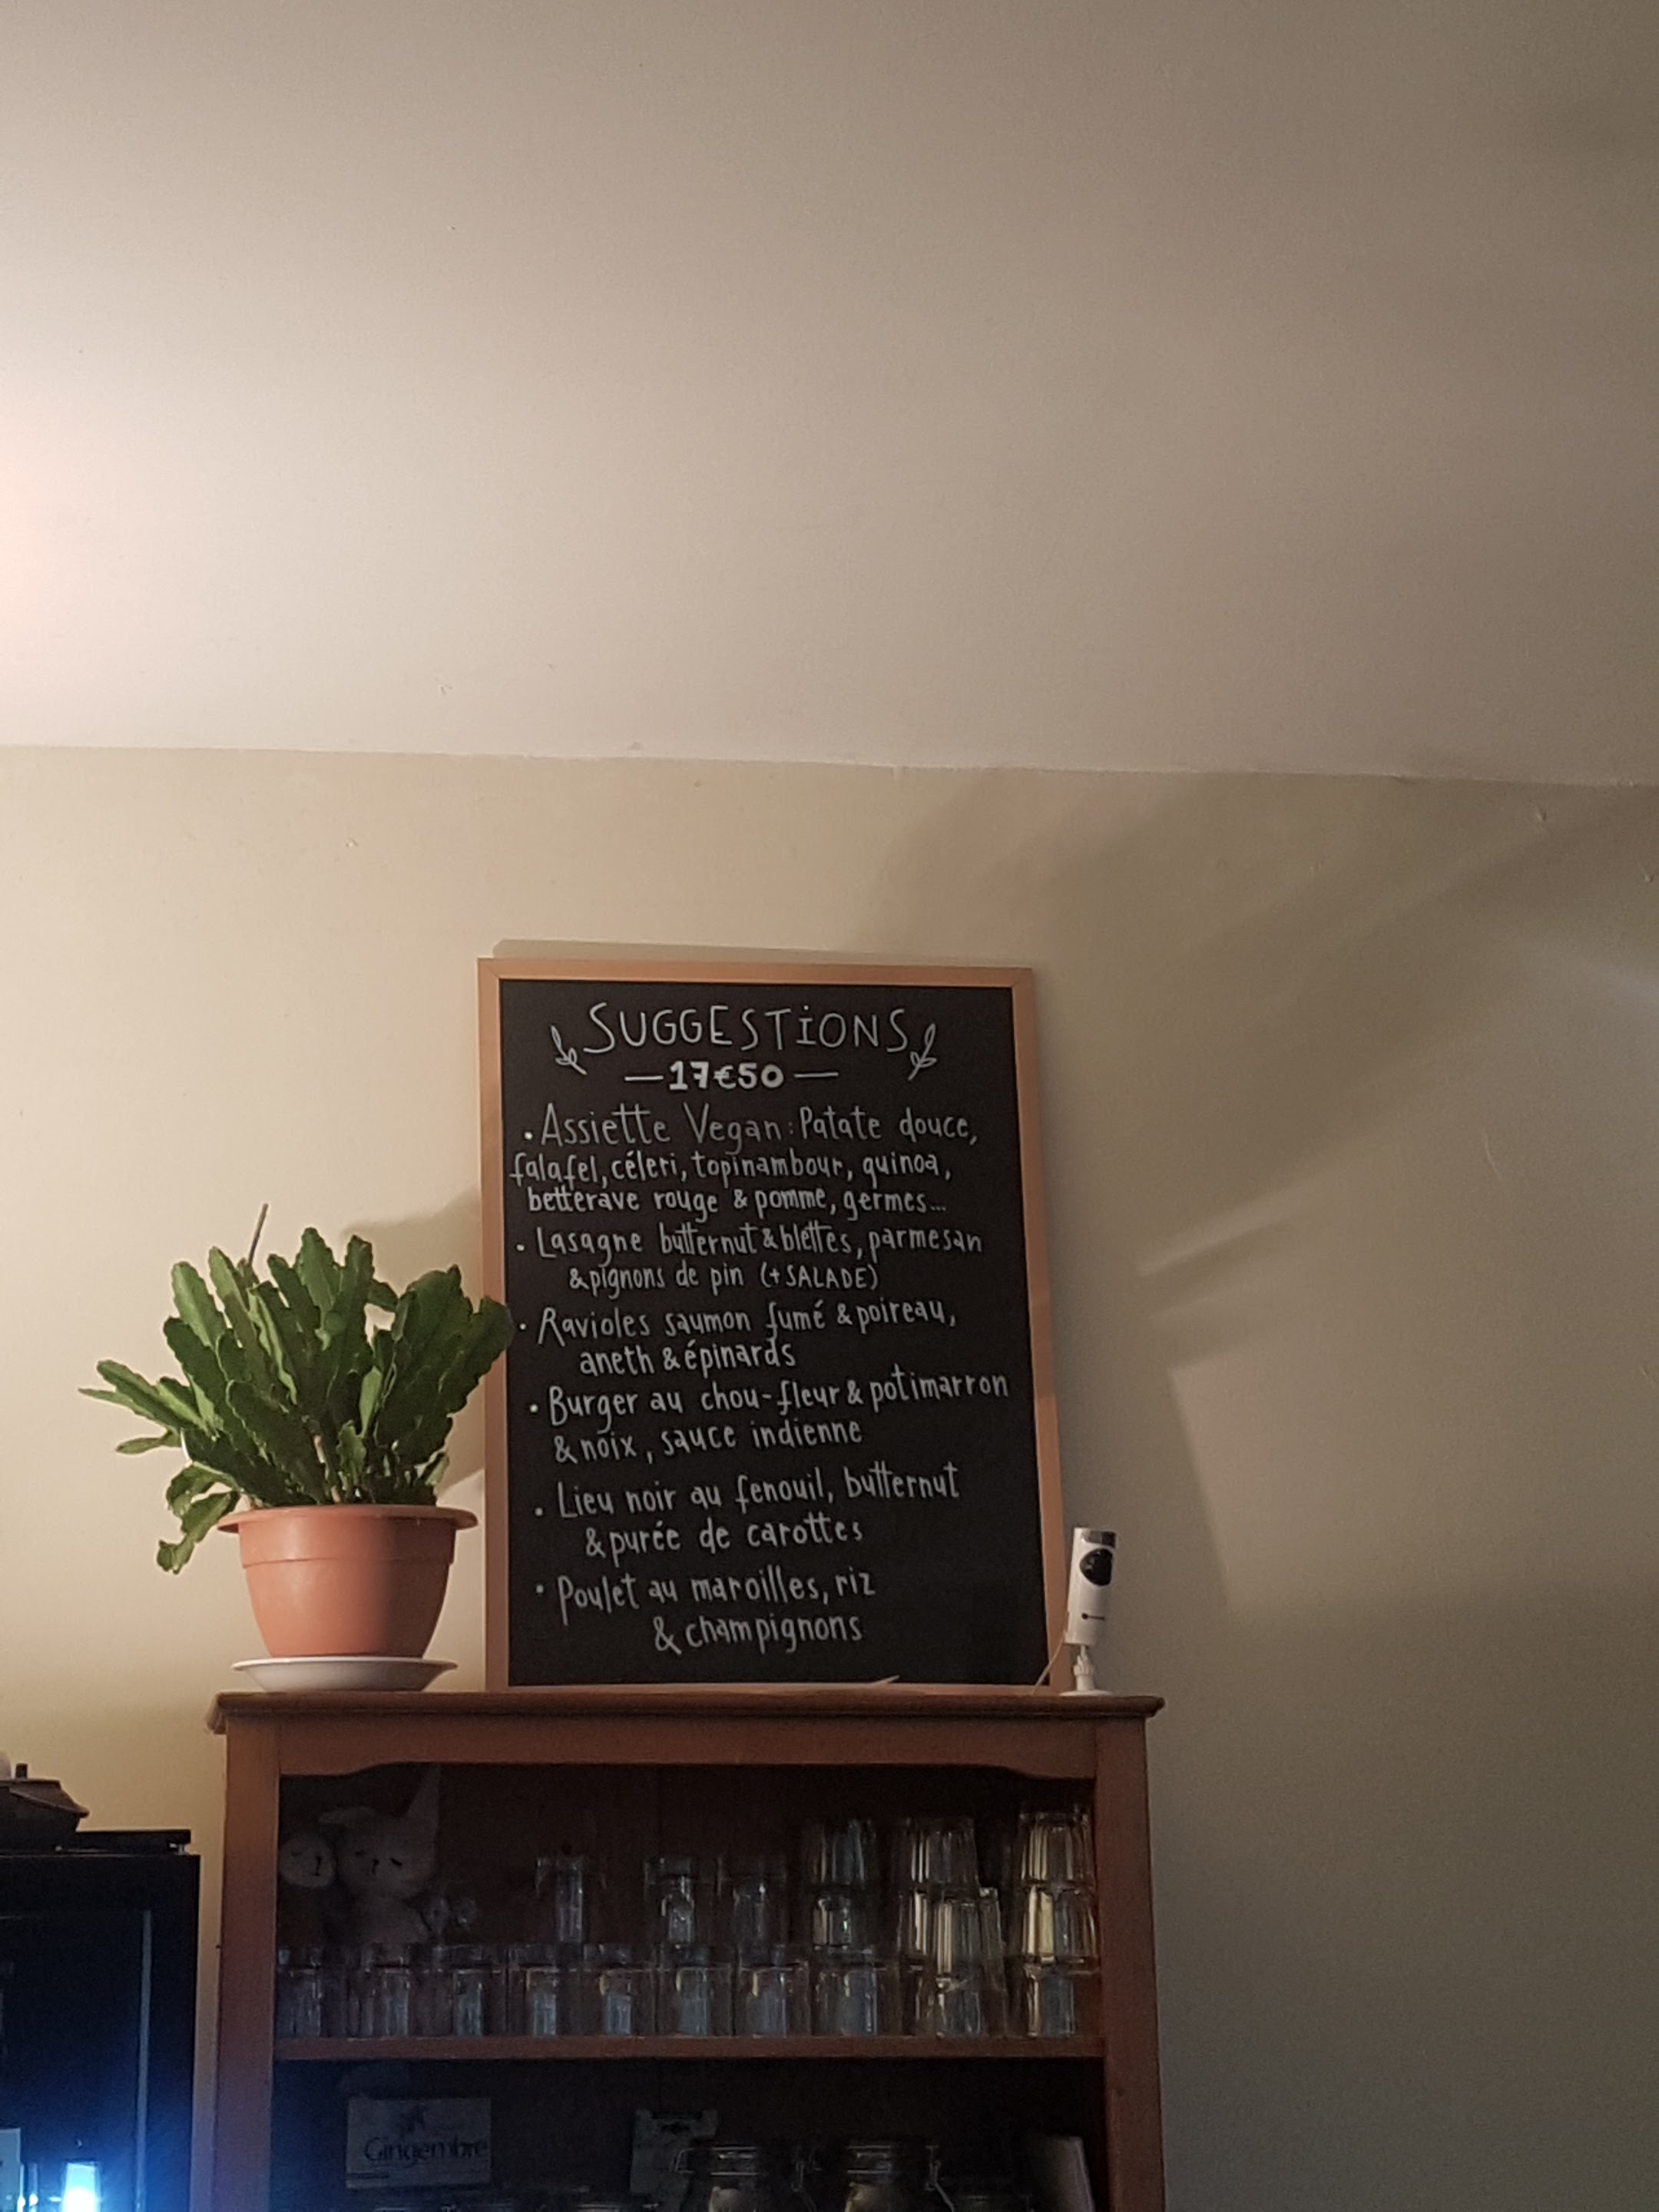 SUGGESTIONS
— 17€50 —
• Assiette Vegan : Patate douce,
falafel, céleri, topinambour, quinoa,
betterave rouge & pomme, germes...
• Lasagne butternut & blettes, parmesan
& pignons de pin (+ SALADE)
• Ravioles saumon fumé & poireau,
aneth & épinards
• Burger au chou-fleur & potimarron
& noix, sauce indienne
• Lieu noir au fenouil, butternut
& purée de carottes
• Poulet au maroilles, riz
& champignons
Gingembre